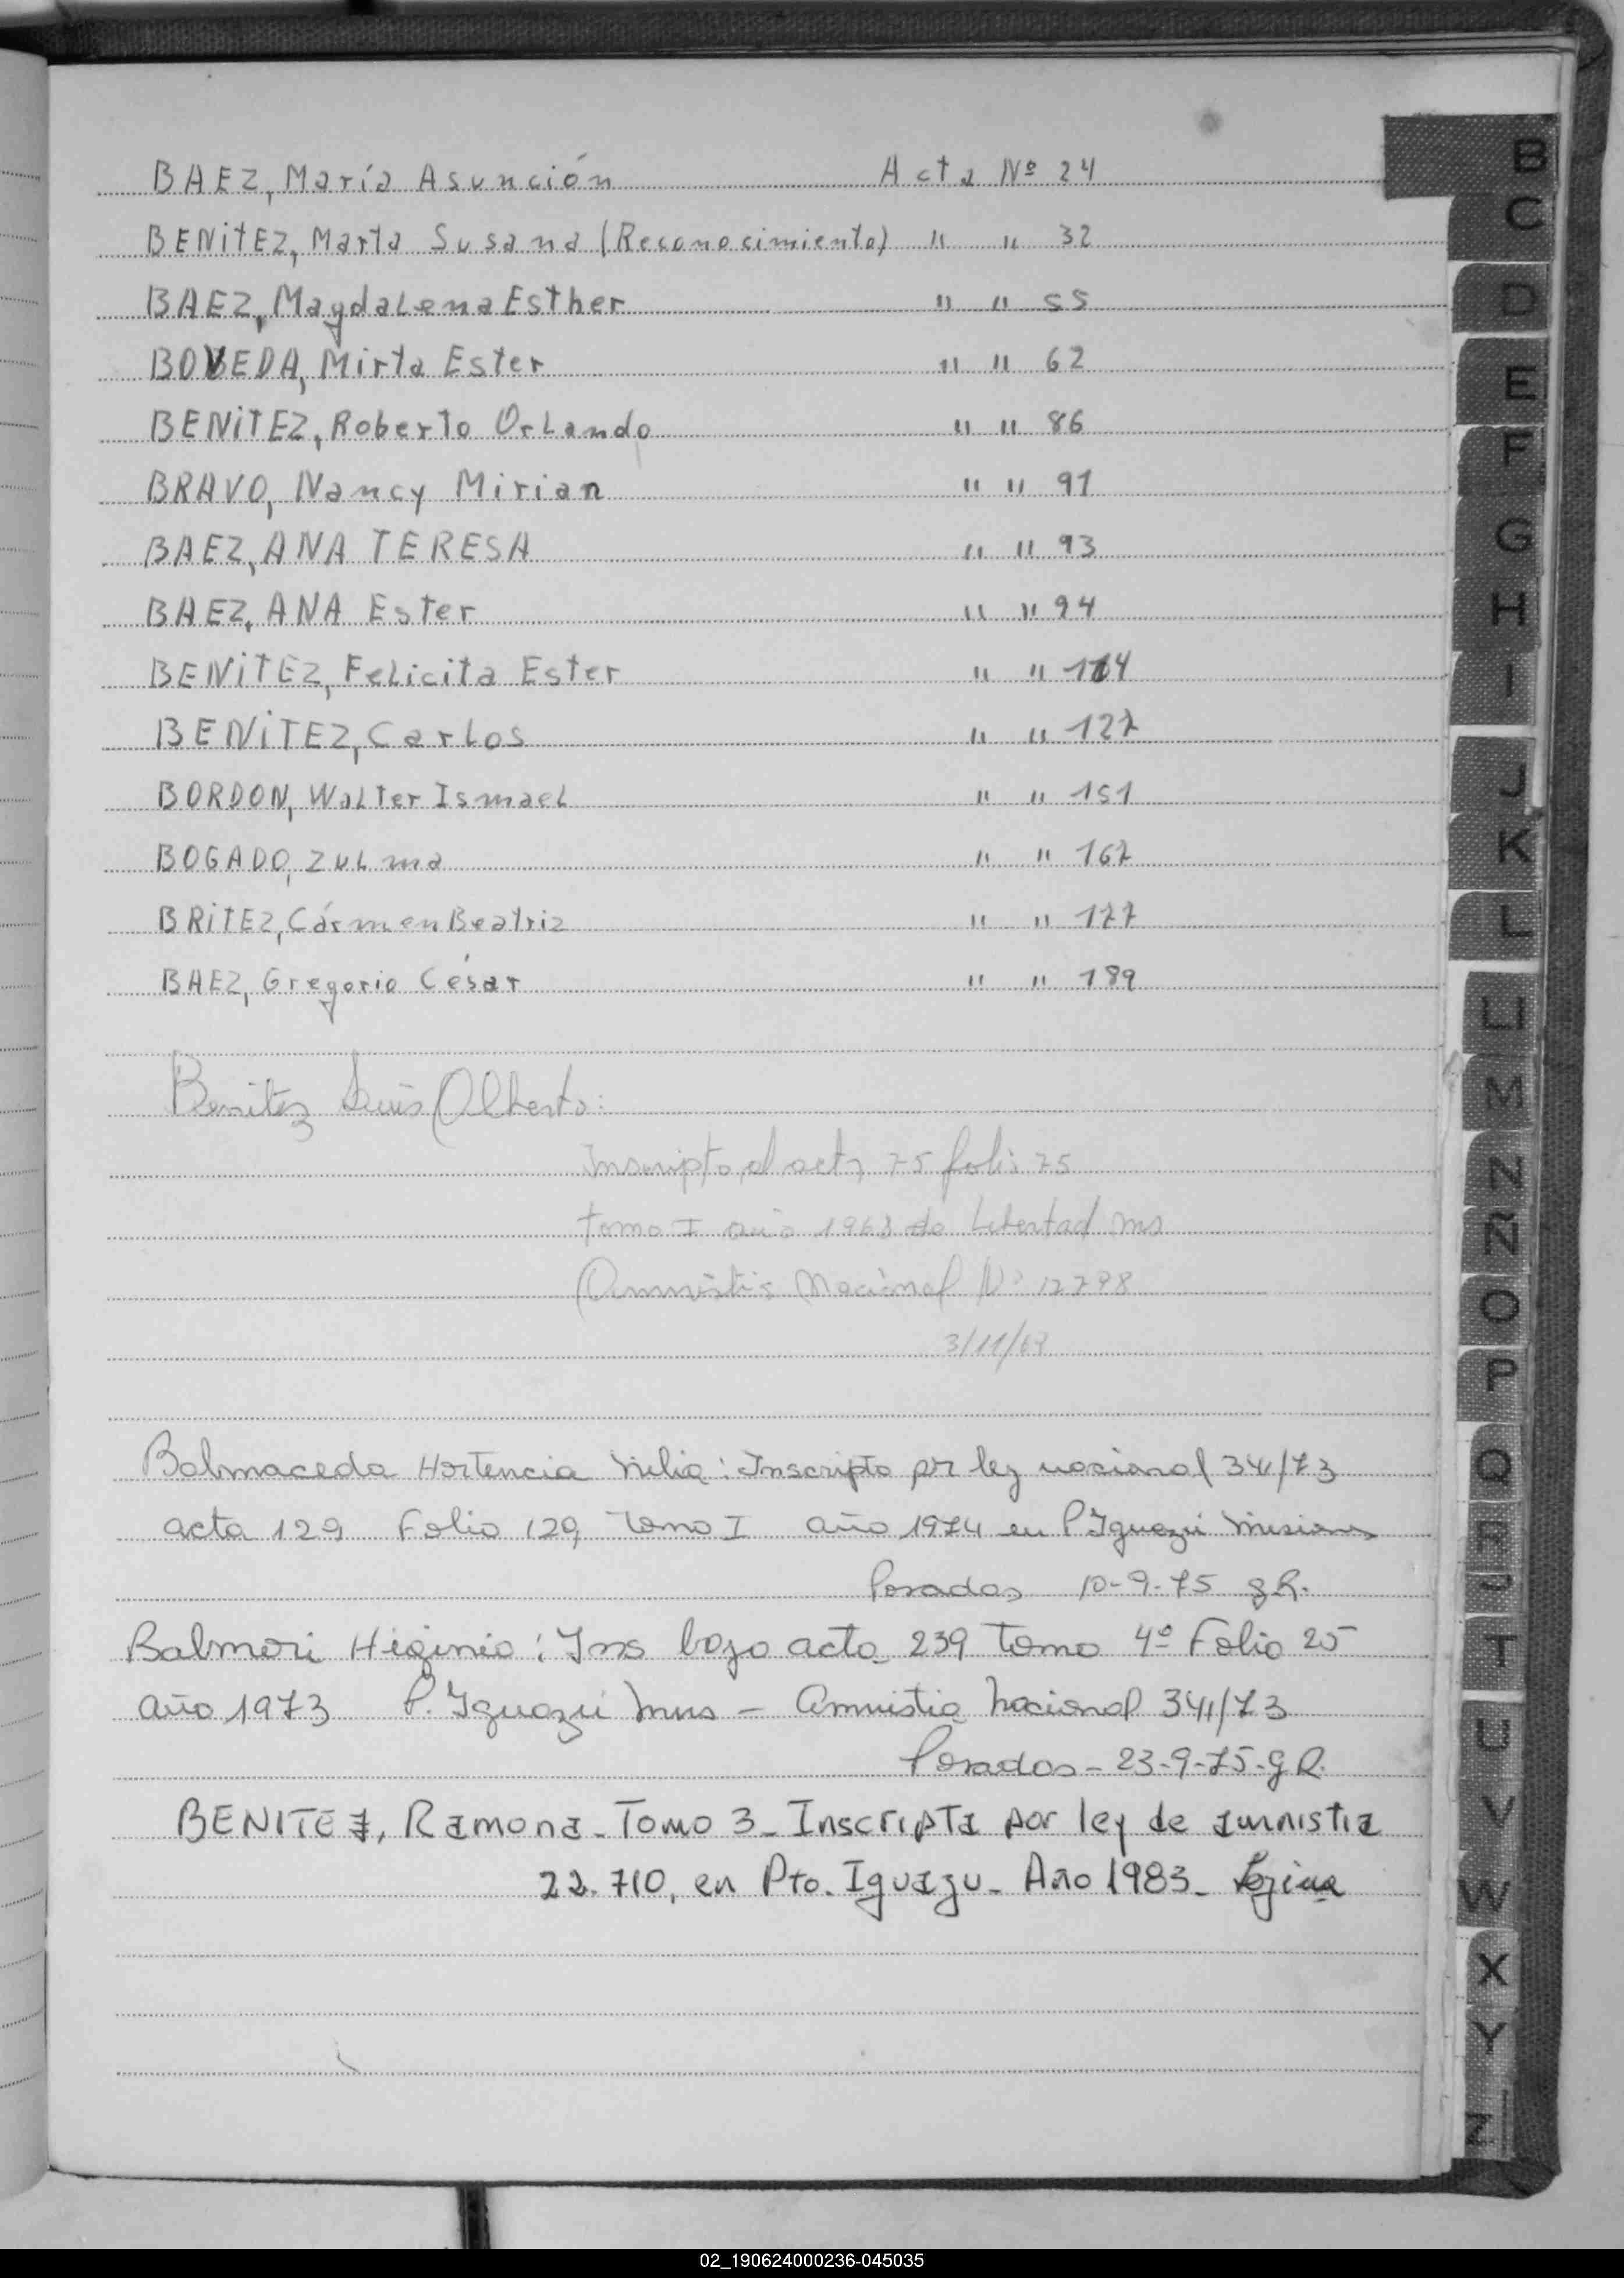 BAEZ, María Asunción Acta Nº 24
BENiTEZ, Marta Susana (Reconocimiento) " " 32
BAEZ, MagdaLena Esther " " 55
BOVEDA, Mirta Ester " " 62
BENiTEZ, Roberto OrLando " " 86
BRAVO, Nancy Mirian " " 91
BAEZ, ANA TERESA " " 93
BAEZ, ANA Ester " " 94
BENiTEZ, FeLicita Ester " " 114
BENiTEZ, CarLos " " 127
BORDON, WaLTer IsmaeL " " 151
BOGADO, ZuLma " " 167
BRiTEZ, Cármen Beatriz " " 177
BAEZ, Gregorio César " " 189
Benitez Luis Alberto:
Inscripto al acta 75 folio 75
tomo I año 1968 de Libertad ms
Amnistia Nacional Nº
3/11/69
Balmaceda Hortencia : Inscripta por ley nacional 341/73
acta 129 Folio 129 Tomo I año 1974 en P. Iguazú Misiones
Posadas 10-9-75 g R.
Balmori Higinio: Ins bajo acta 239 Tomo 4º Folio 25
año 1973 P. Iguazú Mnes - Amnistia Nacional 341/73
Posadas - 23-9-75- g R.
BENITEZ, Ramona - Tomo 3 - Inscripta por ley de amnistia
22.710, en Pto. Iguazu - Año 1983 -
B
C
D
E
F
G
H
I
J
K
L
LL
M
N
Ñ
O
P
Q
R
T
U
V
W
X
Y
Z
02_190624000236-045035